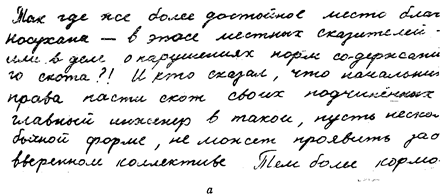 Так где же более достойное место благ
носухана — в эпосе местных сказителей -
или в деле о нарушениях норм содержани
го скота?! И кто сказал, что начальник
права пасти скот своих подчинённых
главный инженер в такой, пусть неско
бычной форме, не может проявить забо
вверенном коллективе Тем более кормо
а